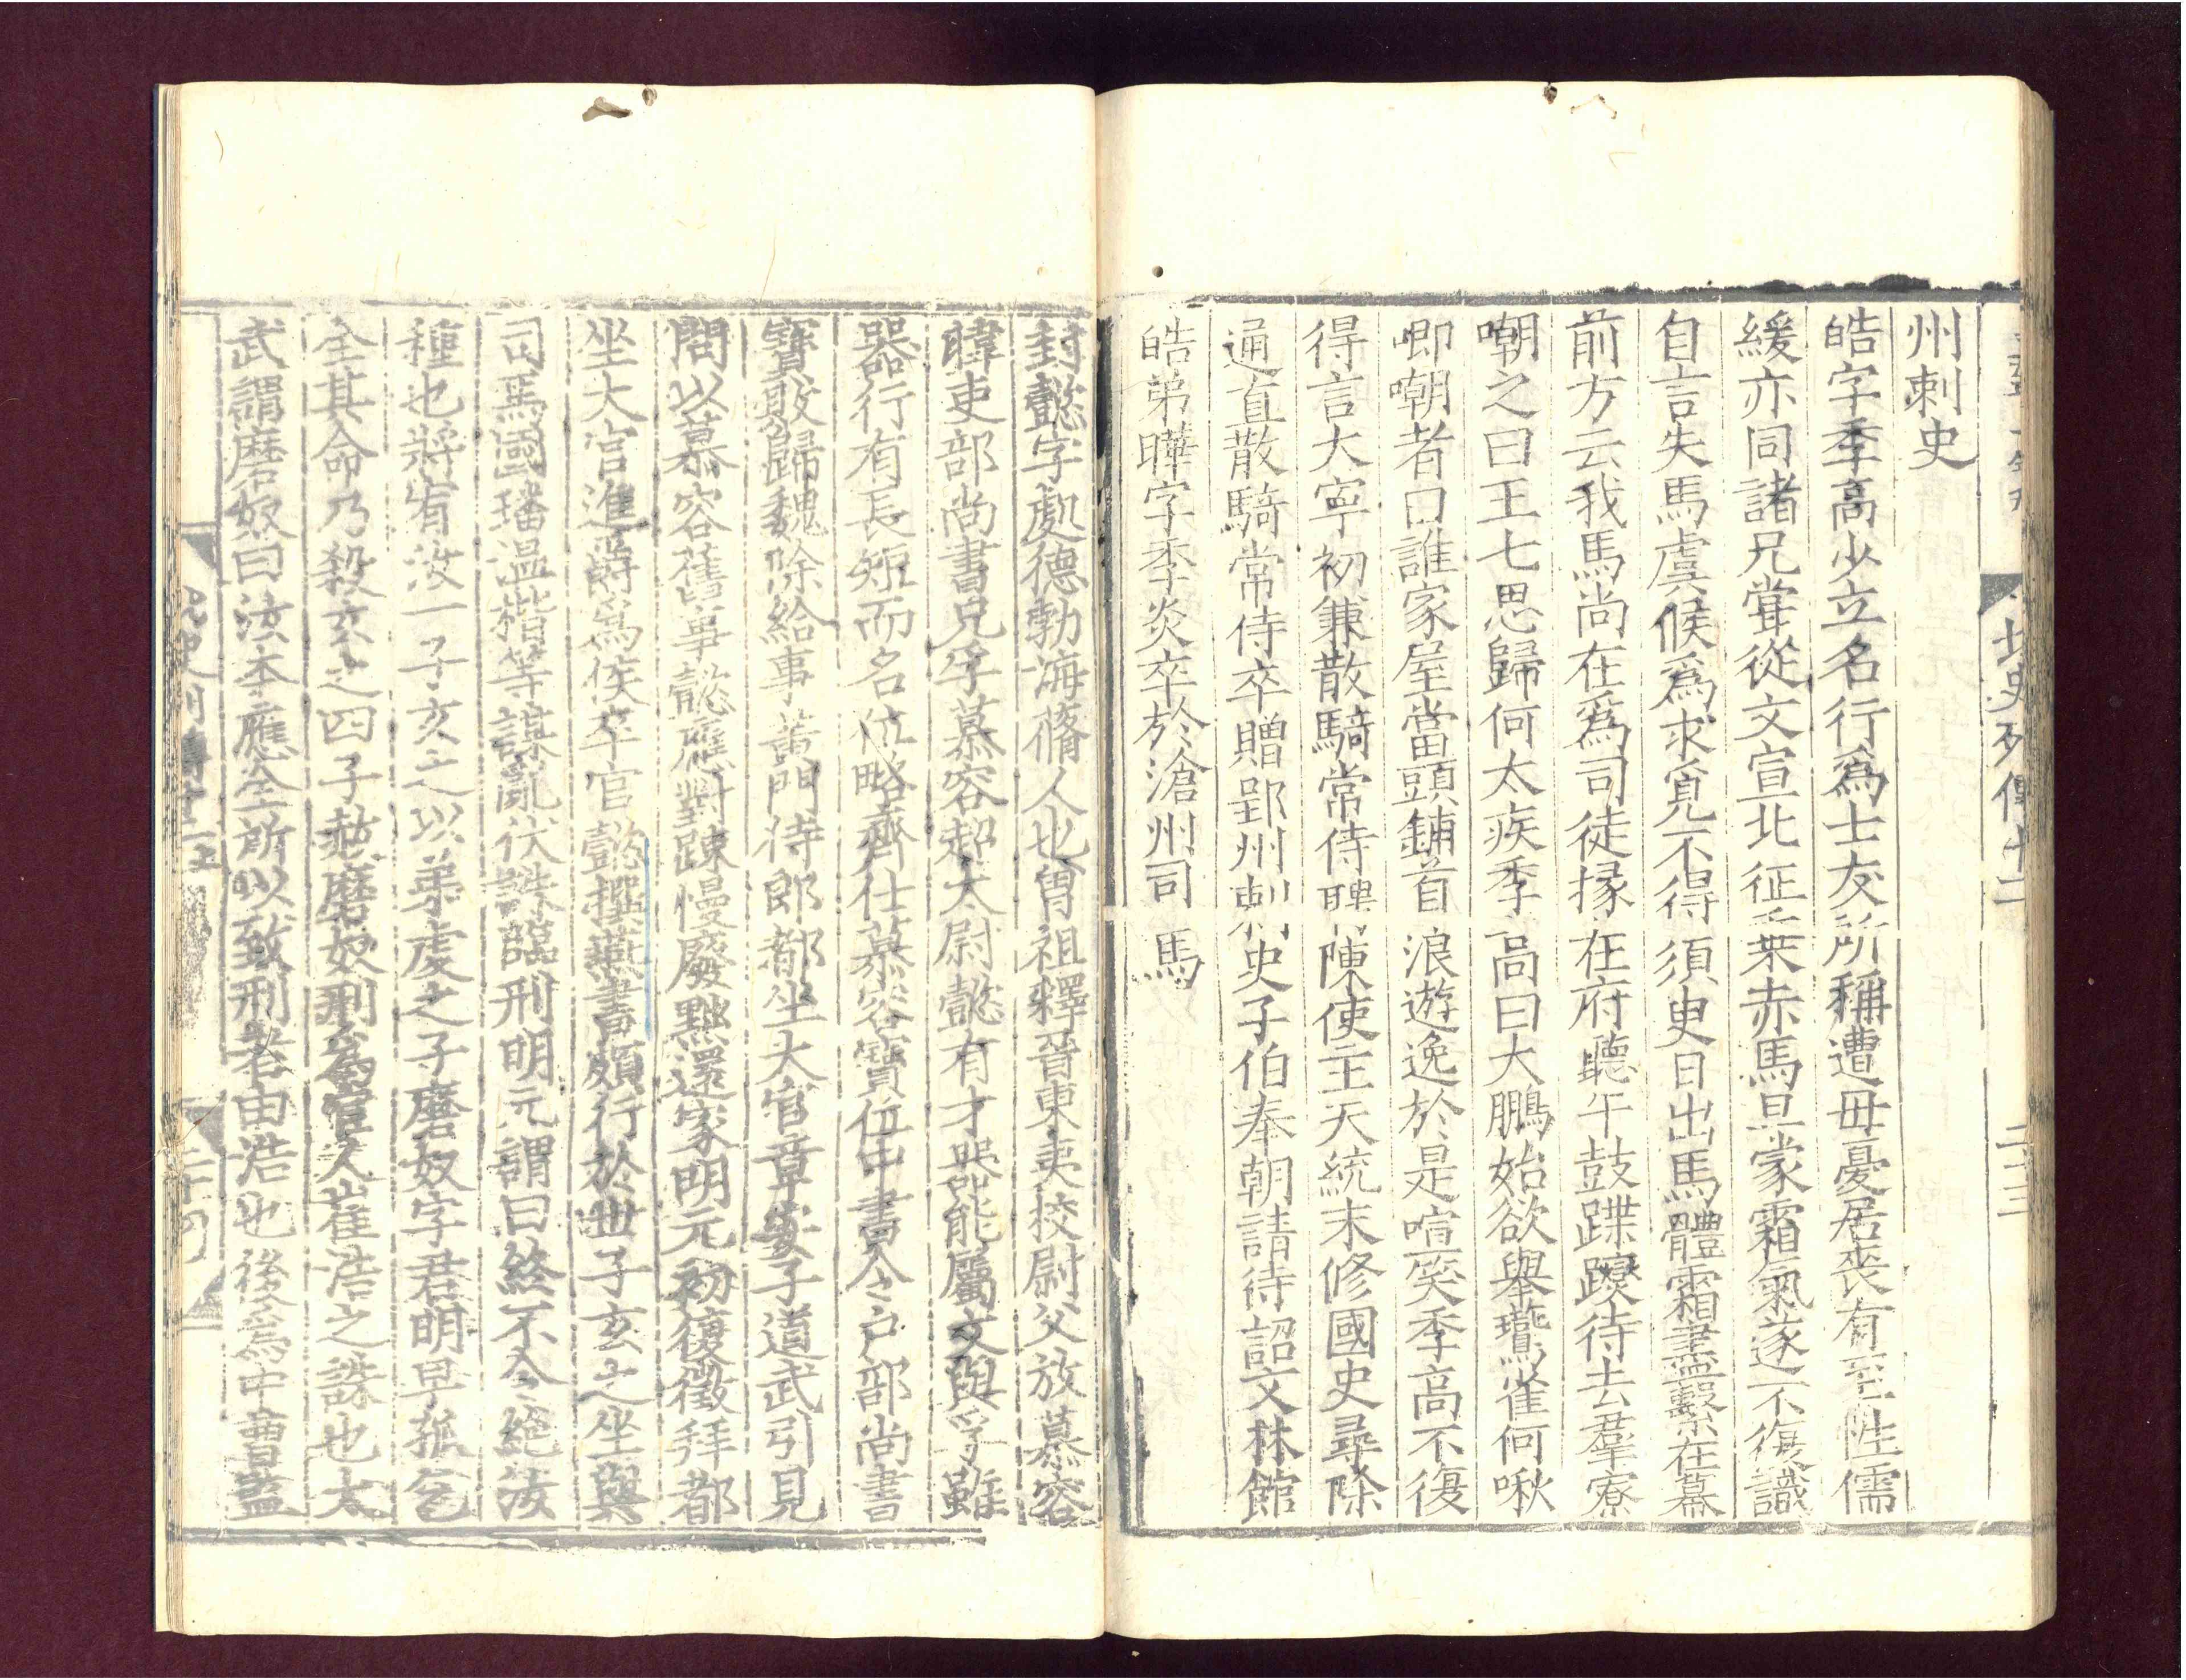 北史列傳十二
二十三
州刺史
皓字季高少立名行爲士友所稱遭母憂居喪有至性儒
緩亦同諸兄嘗從文宣北征乗赤馬旦蒙霜氣遂不復識
自言失馬虞候爲求覓不得須臾日出馬體霜盡繫在幕
前方云我馬尚在爲司徒掾在府聽午鼓蹀躞待去羣寮
嘲之曰王七思歸何太疾季高曰大鵬始欲舉鷰雀何啾
唧嘲者曰誰家屋當頭鋪首浪遊逸於是喧笑季高不復
得言大寧初兼散騎常侍聘陳使主天統末修國史尋除
通直散騎常侍卒贈郢州刺史子伯奉朝請待詔文林館
皓弟曄字季炎卒於滄州司馬
封懿字處德勃海脩人也曾祖釋晉東夷校尉父放慕容
暐吏部尚書兄孚慕容超太尉懿有才器能屬文與孚雖
器行有長短而名位略齊仕慕容寶位中書令户部尚書
寶敗歸魏除給事黃門侍郎都坐大官章安子道武引見
問以慕容舊事懿應對踈慢廢黜還家明元初復徵拜都
坐大官進爵爲侯卒官懿撰燕書頗行於世子玄之坐與
司馬國璠温楷等謀亂伏誅臨刑明元謂曰終不令絕汝
種也將宥汝一子玄之以弟虔之子磨奴字君明早孤乞
全其命乃殺玄之四子赦磨奴刑爲宦人崔浩之誅也太
武謂磨奴曰汝本應全所以致刑者由浩也後爲中曹監
北史列傳十二
二十四